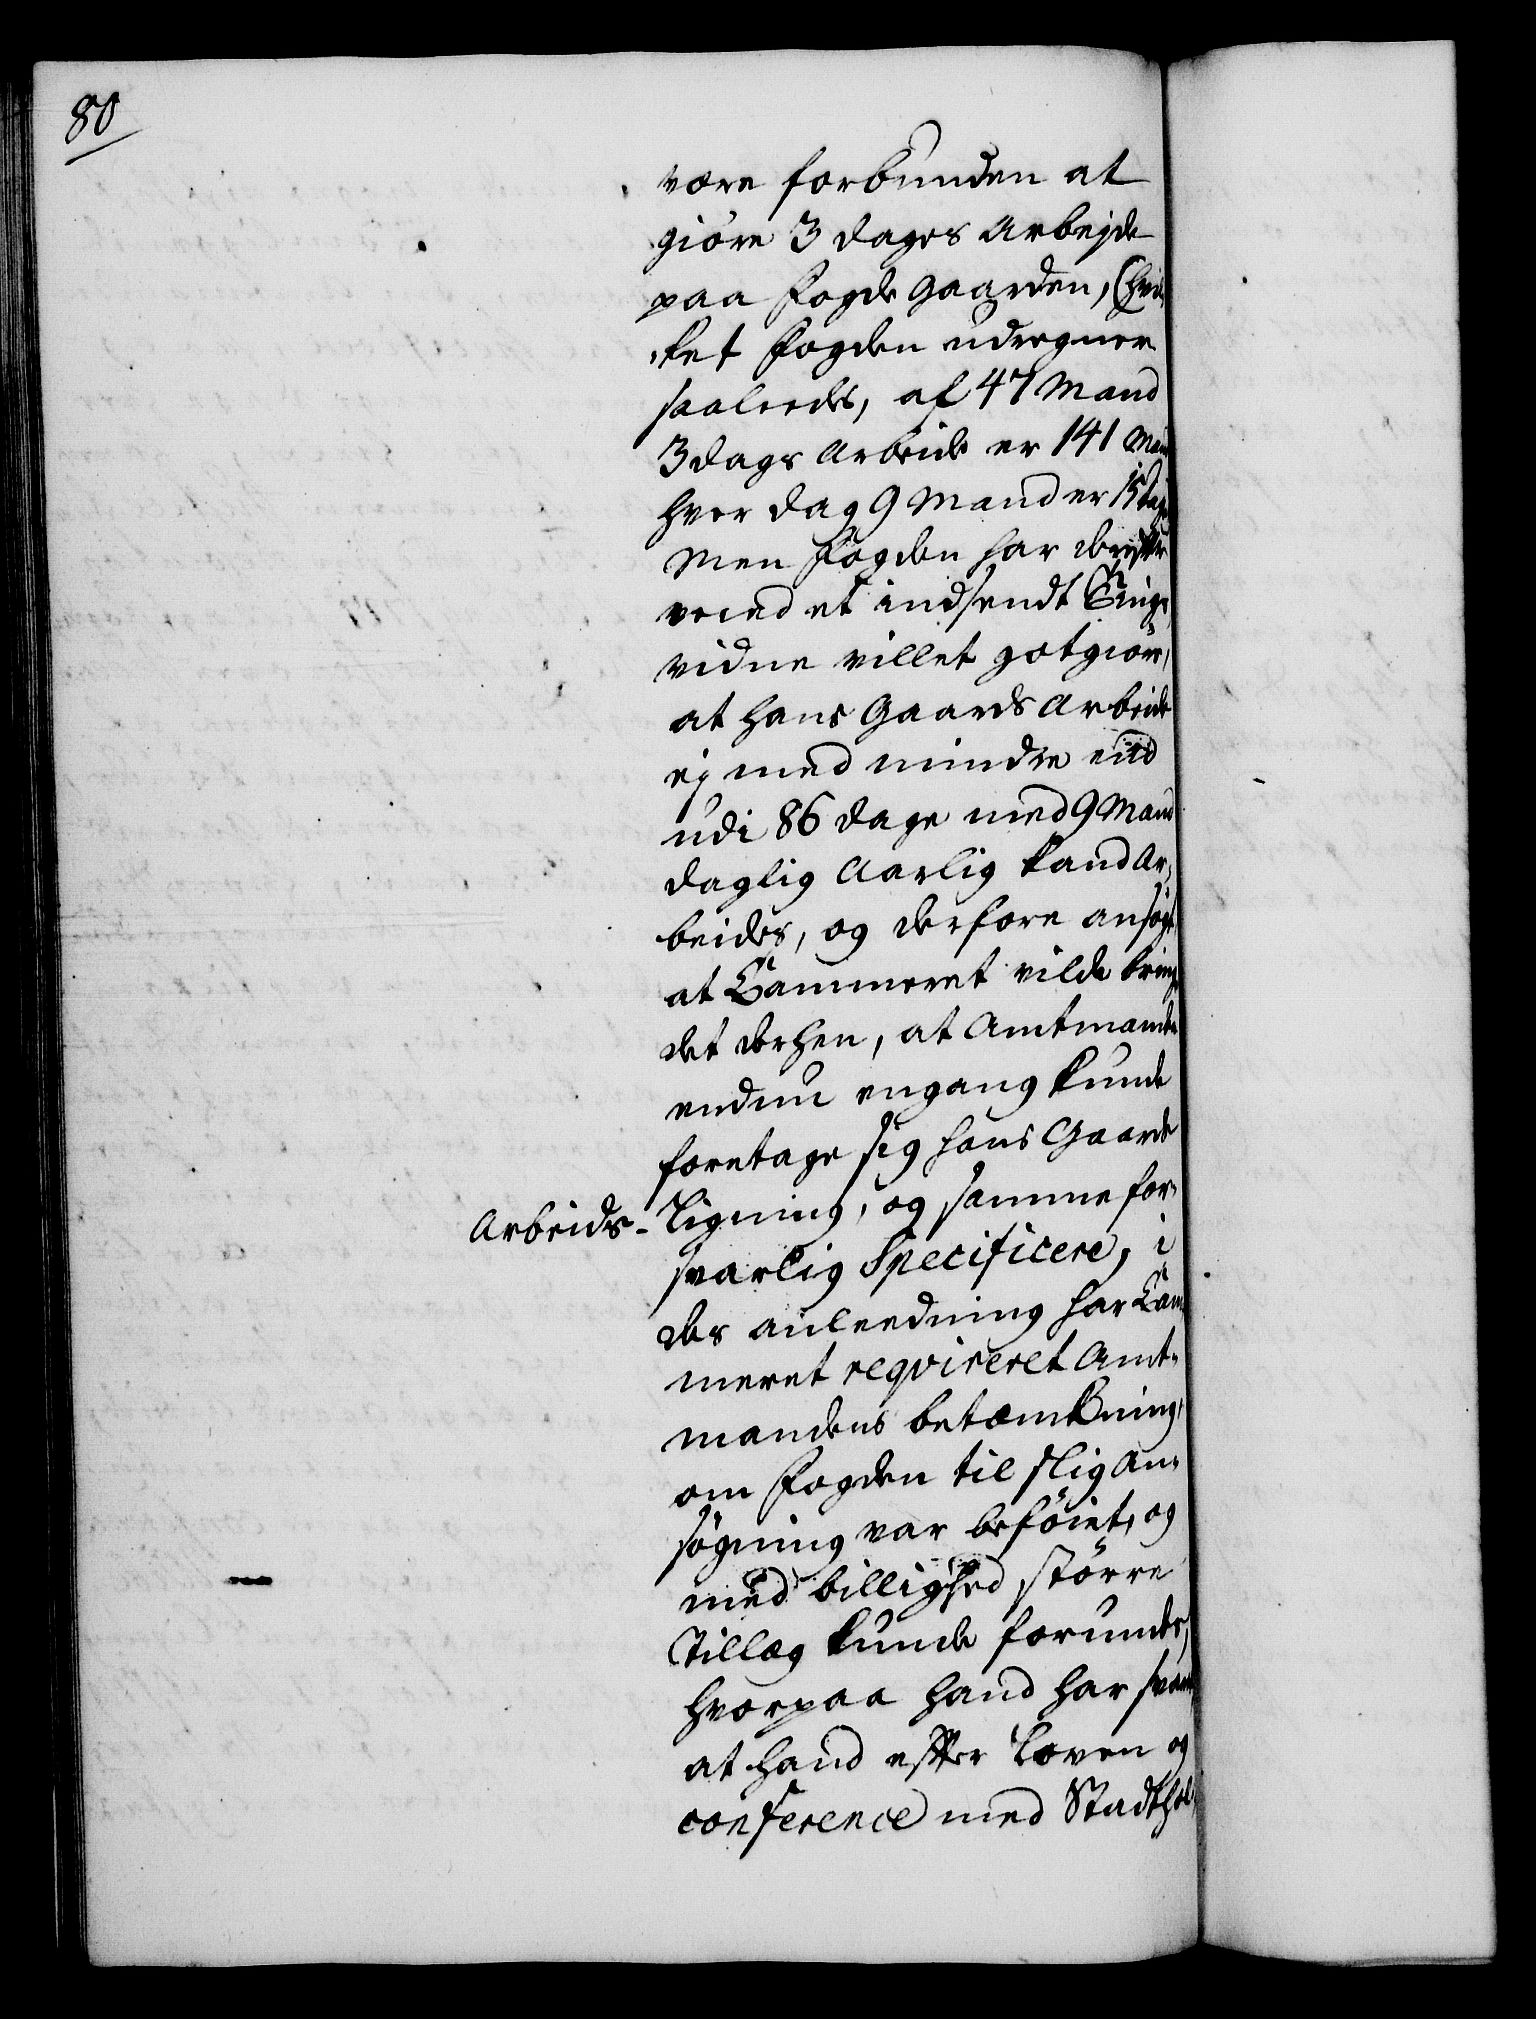 80
være forbunden at
giöre 3 dages Arbejde
paa Fogde Gaarden, (hvil,
,ket Fogden udregner
saaleedes, af 47 Mand
3 dags Arbeide er 141 Man
hver dag 9 Mand er 15 dage
Men Fogden har derefter
med et indsendt Tings,
vidne villet gotgiöre,
at hans Gaards Arbeide
ej med mindre end
udi 86 dage med 9 Mand
daglig Aarlig kand Ar,
beides, og derfore ansögt
at Cammeret vilde bringe
det derhen, at Amtmanden
endnu engang kunde
foretage sig hans Gaards
Arbeids- Ligning, og samme for,
svarlig Specificere, i
des anleedning har Cam,
meret reqvireret Amt,
mandens betænkning,
om Fogden til slig An,
sögning var beföiet, og
med billighed större
Tillæg kunde forundes,
hvorpaa hand har svaret,
at hand efter Loven og
conference med Stadthol,